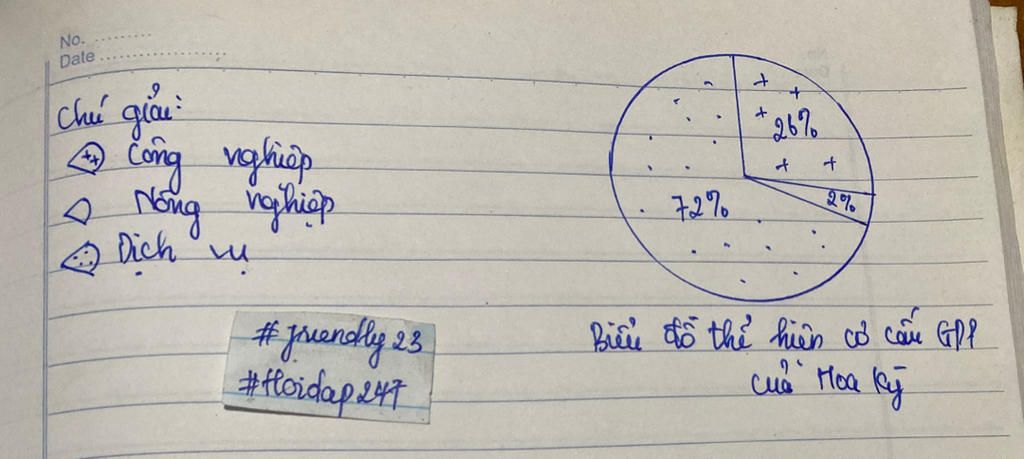 No. ..........
Date ......................
Chú giải:
Công nghiệp
Nông nghiệp
Dịch vụ
26%
2%
72%
#friendly23
#Hoidap247
Biểu đồ thể hiện cơ cấu GDP
của Hoa Kỳ